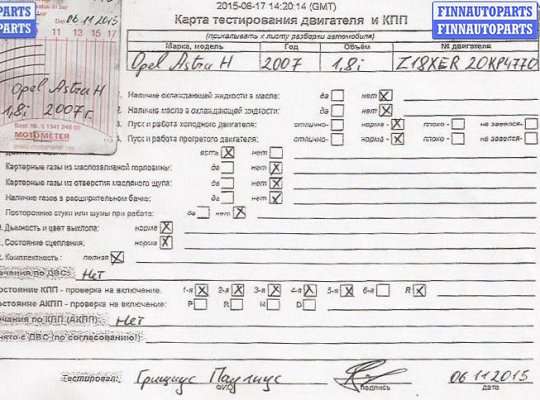 2015-06-17 14:20:14 (GMT)
FINNAUTOPARTS
FINNAUTOPARTS
PARTS
PARTS
06 11 2015
Карта тестирования двигателя и КПП
(прикалывать к листу разборки автомобиля)
Марка, модель Год Объём № двигателя
Opel Astra H 2007 1,8i Z18XER 20KP4770
Opel Astra H
1,8i 2007г.
MOTOMETER
Наличие охлаждающей жидкости в масле: да нет X
Наличие масла в охлаждающей жидкости: да нет X
Пуск и работа холодного двигателя: отлично- норма - X плохо - не завелся-
Пуск и работа прогретого двигателя: отлично- норма - X плохо - не завелся-
есть X нет
Картерные газы из маслозаливной горловины: да нет X
Картерные газы из отверстия масляного щупа: да нет X
Наличие газов в расширительном бачке: да нет X
Посторонние стуки или шумы при работе: да нет X
Дымность и цвет выхлопа: норма X
Состояние сцепления: норма X
Комплектность: полная X
чания по ДВС: Нет
остояние КПП - проверка на включение. 1-я X 2-я X 3-я X 4-я X 5-я X 6-я R X
остояние АКПП - проверка на включение: P R N D
чания по КПП (АКПП): Нет
нято с ДВС (по согласованию!):
Тестировал: Грициус Паулиус 06 11 2015
ФИО подпись дата